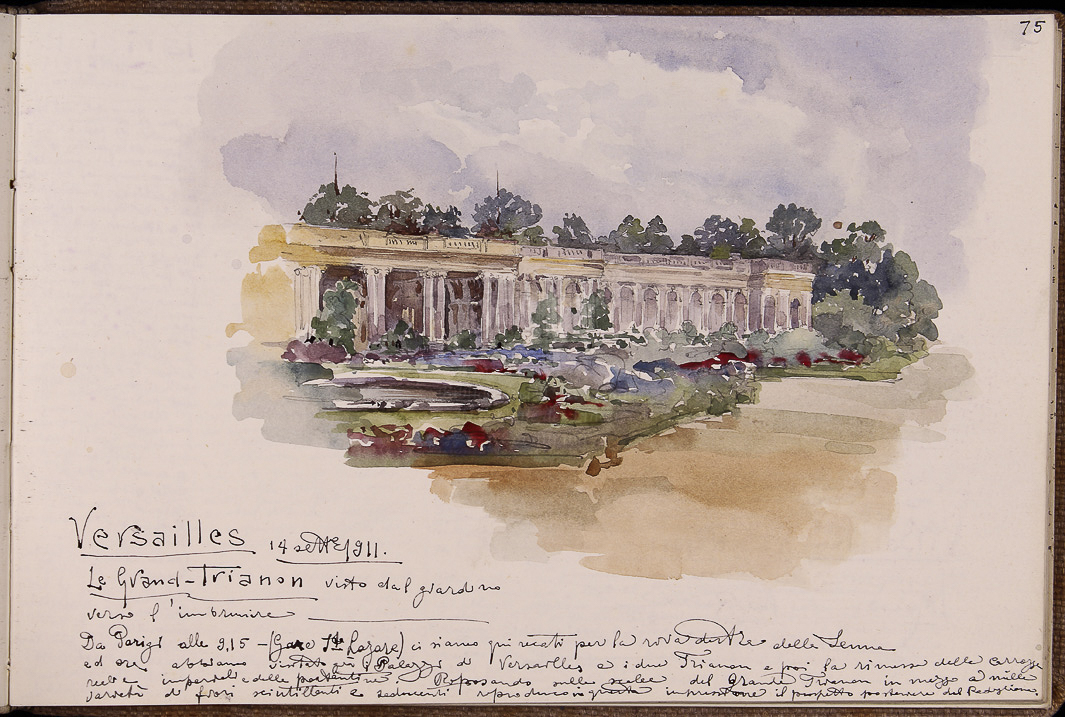 75
Versailles 14 sett.e 1911.
Le Grand-Trianon visto dal giardino
verso l'imbrunire
Da Parigi alle 9,15 - (Gare St Lazare) ci siamo qui recati per la riva destra della Senna
ed ora abbiamo visitato già i Palazzi di Versailles e i due Trianon e poi la rimessa delle carrozze
reali e imperiali e delle portantine. Riposando sulle scalee del Grande Trianon in mezzo a mille
varietà di fiori scintillanti e seducenti riproduco in questa impressione il prospetto posteriore del Padiglione.